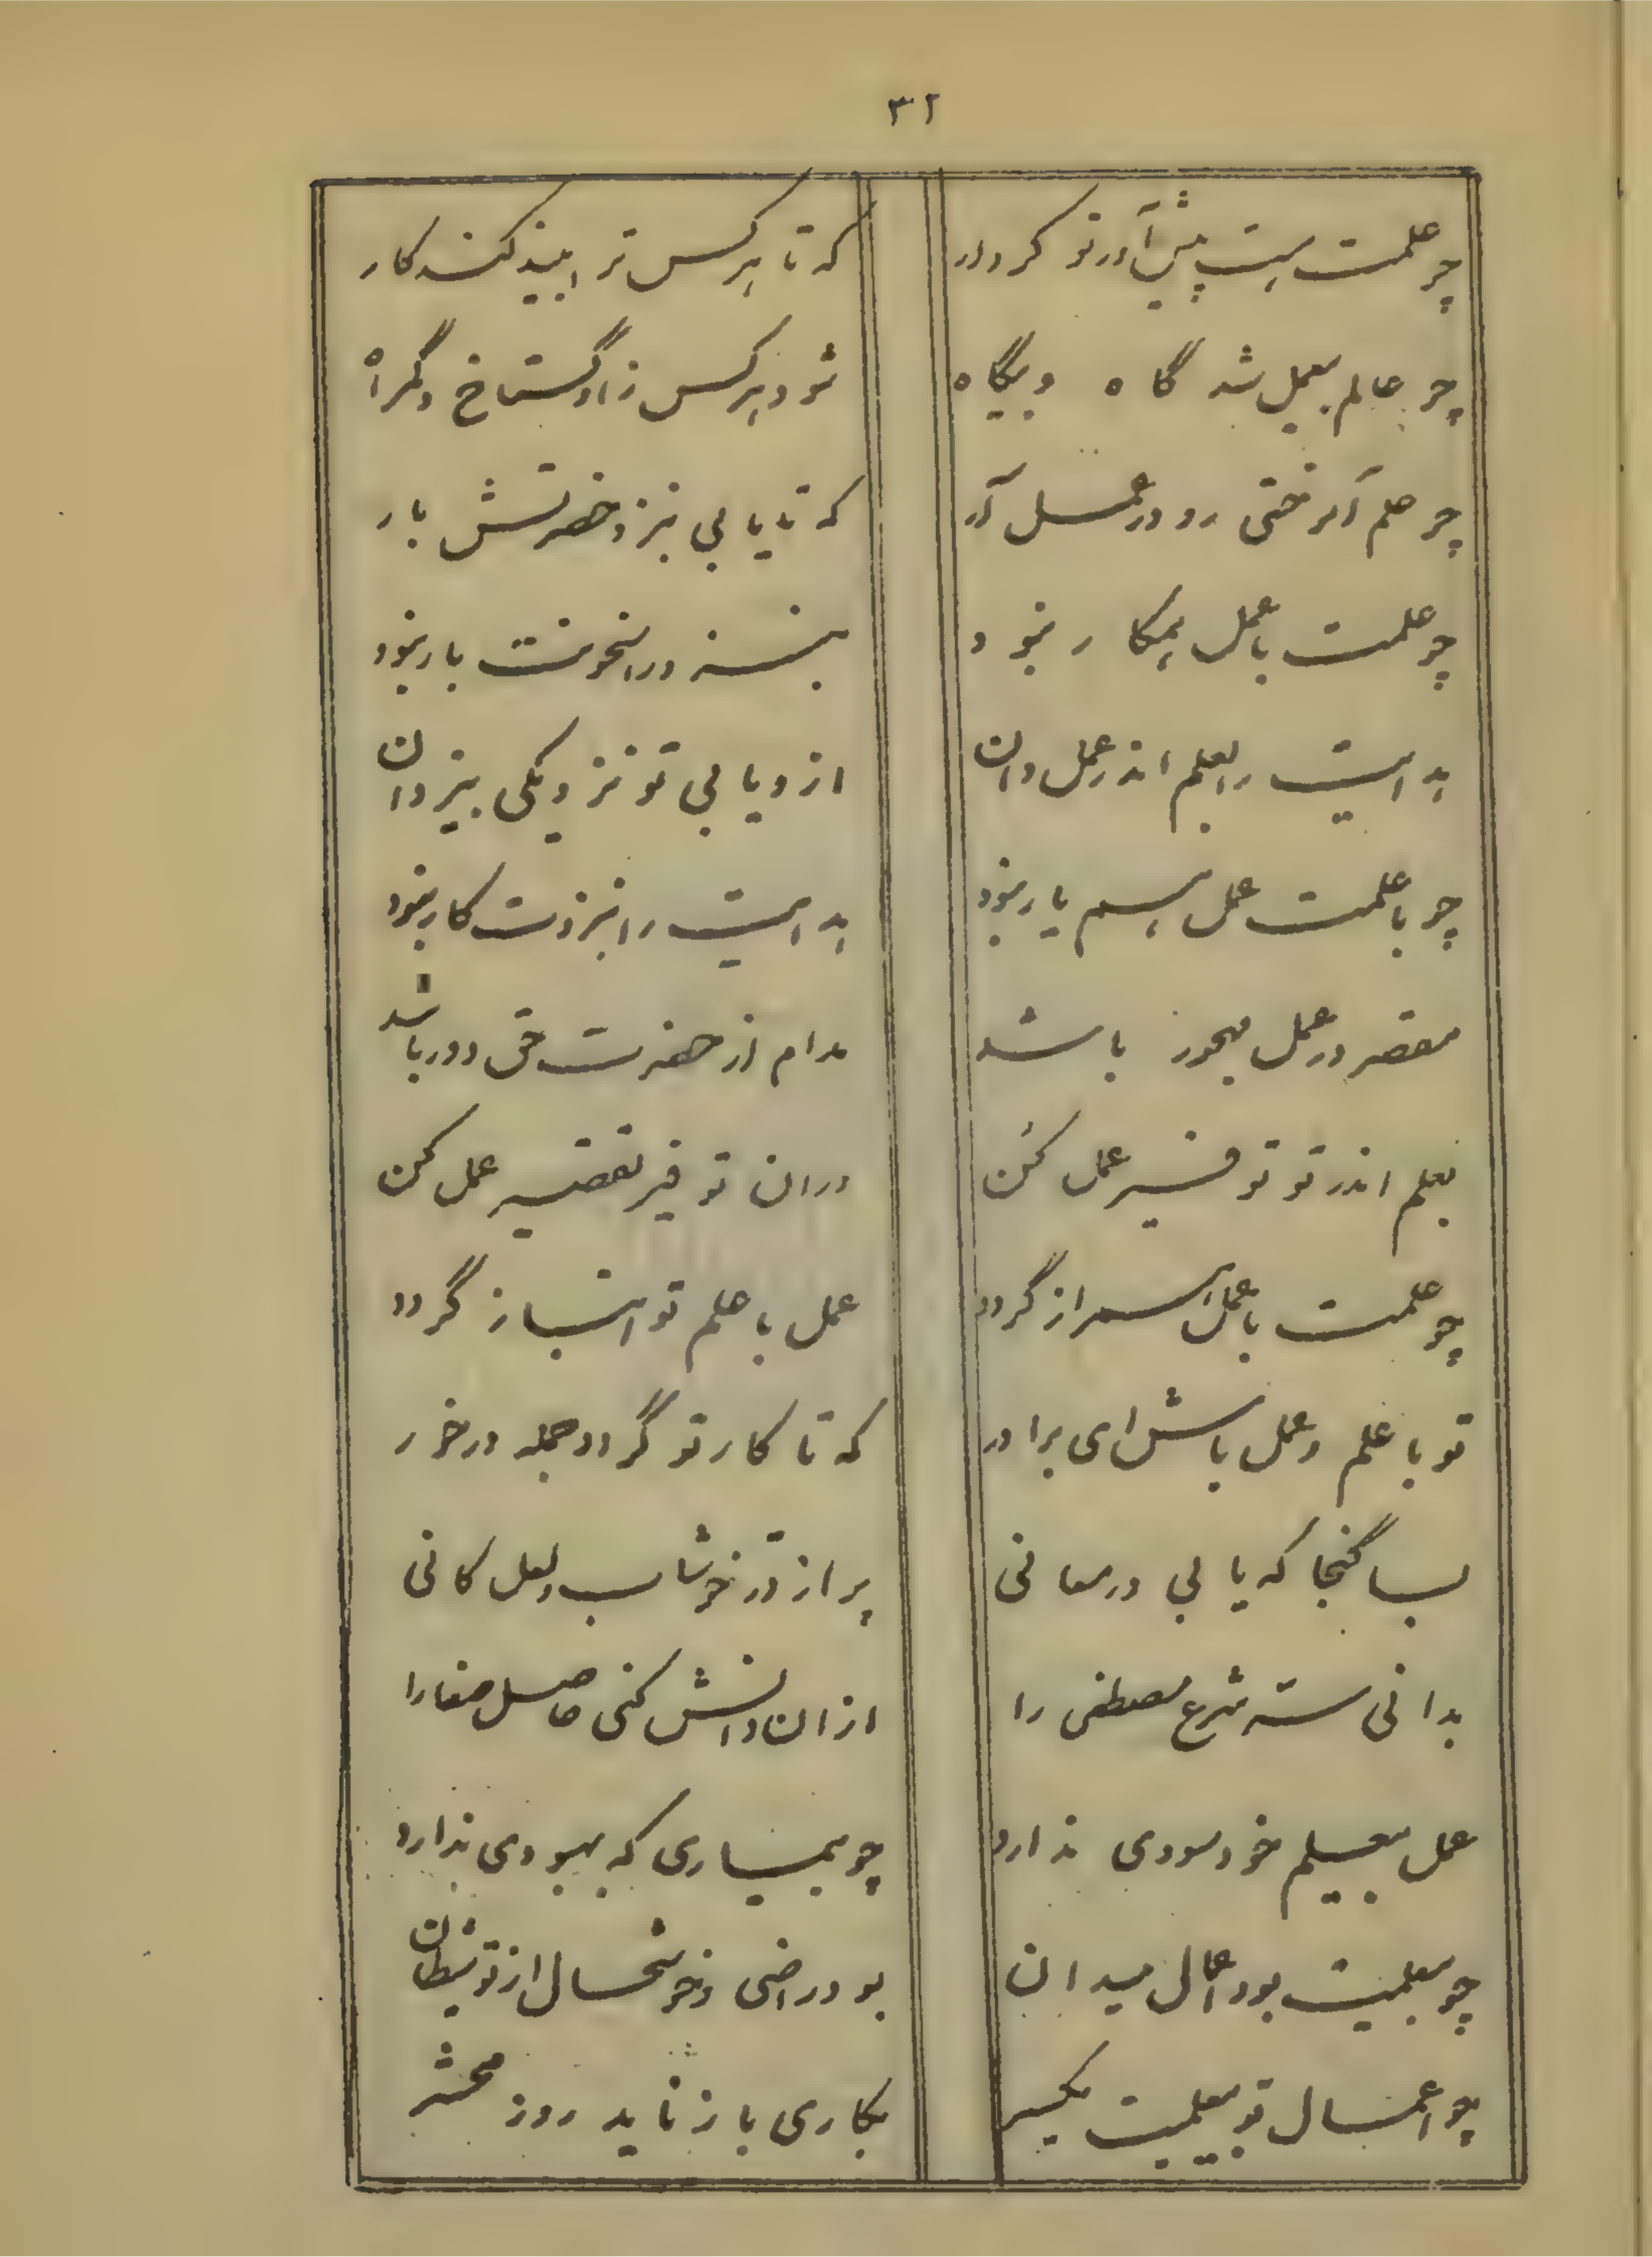 ۳۲
چو علمت هست پیش آور تو کردار
که تا هر کس ترا بیند کند کار
چو عالم بیعمل شد گاه و بیگاه
شود هر کس ز او گستاخ و گمراه
چو علم آموختی رو در عمل آر
که تا یابی بنزد حضرتش بار
چو علمت با عمل همکار نبود
بنزد در انجمنت بار نبود
هدایت را بعلم اندر عمل دان
ازو یابی تو نزدیکی بیزدان
چو با علمت عمل هم یار نبود
هدایت را بنزدت کار نبود
مقصر در عمل مهجور باشد
مدام از حضرت حق دور باشد
بعلم اندر تو توفیر عمل کن
در ان توفیر تقصیر عمل کن
چو علمت با عمل همراز گردد
عمل با علم تو انباز گردد
تو با علم و عمل باش ای برادر
که تا کار تو گردد جمله در خور
بسا گنجا که یابی در معانی
پر از در خوشاب و لعل کانی
بدانی سته شرع مصطفی را
از ان دانش کنی حاصل صفا را
عمل بیعلم خود سودی ندارد
چو بیماری که بهبودی ندارد
چو بیعلمیت بود اعمال میدان
بود راضی و خوشحال از تو شیطان
چو اعمال تو بیعلمیت یکسر
بکاری باز ناید روز محشر